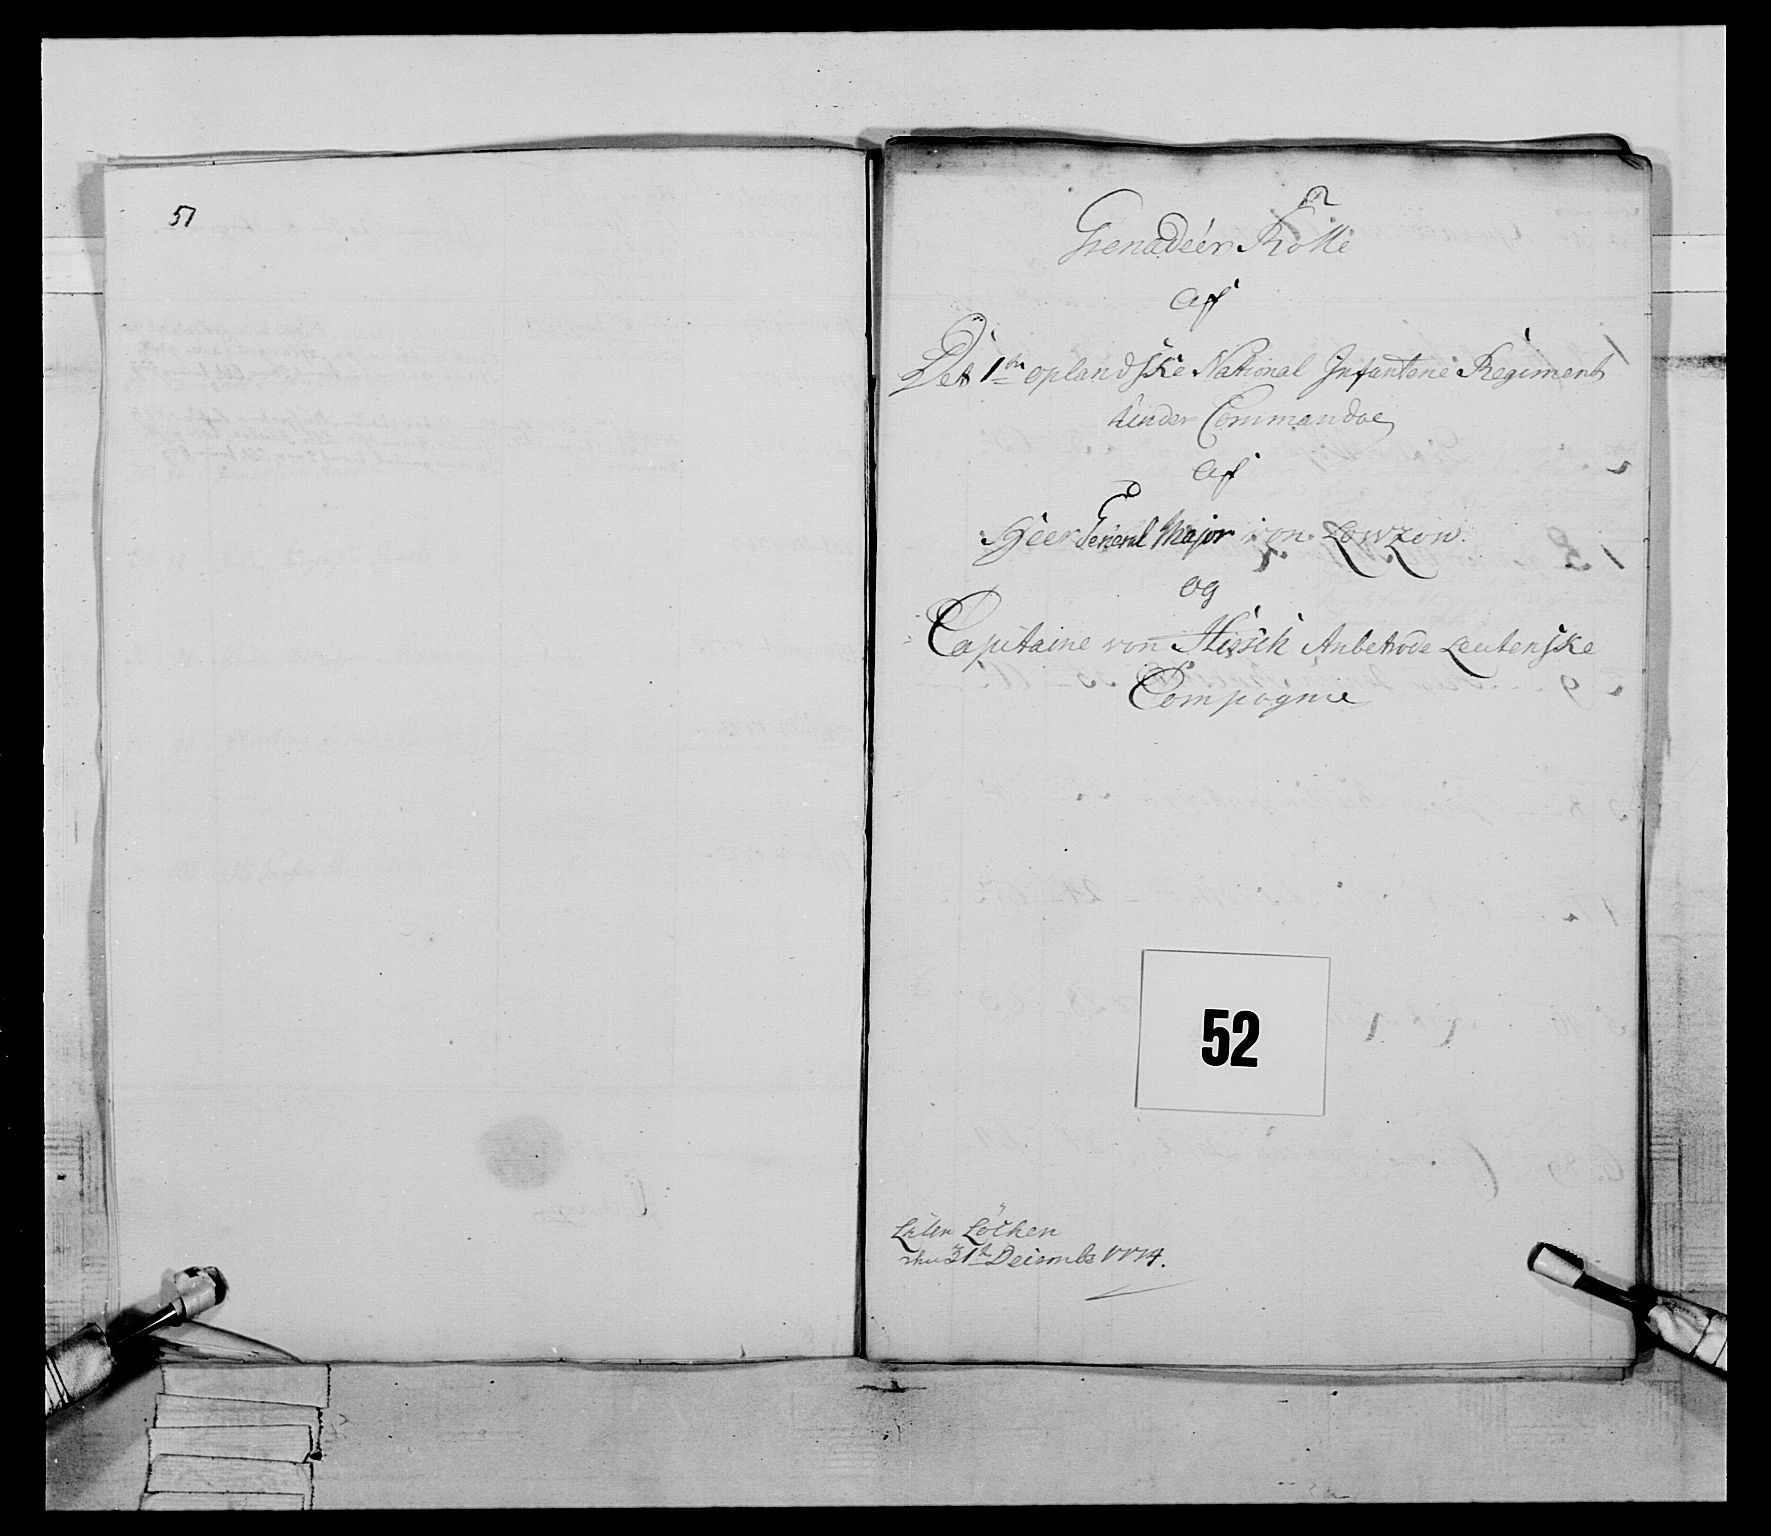 51
Grenadeer Rolle
Aff
Det 1ste oplandske National Infanterie Regiment
Under Commandoe
Aff
Heer General Major von Lowzow.
og
Capitaine von Hirsch Anbetrode Leutenske
Compagnie
52
Løchen
den 31te Decembr 1774.